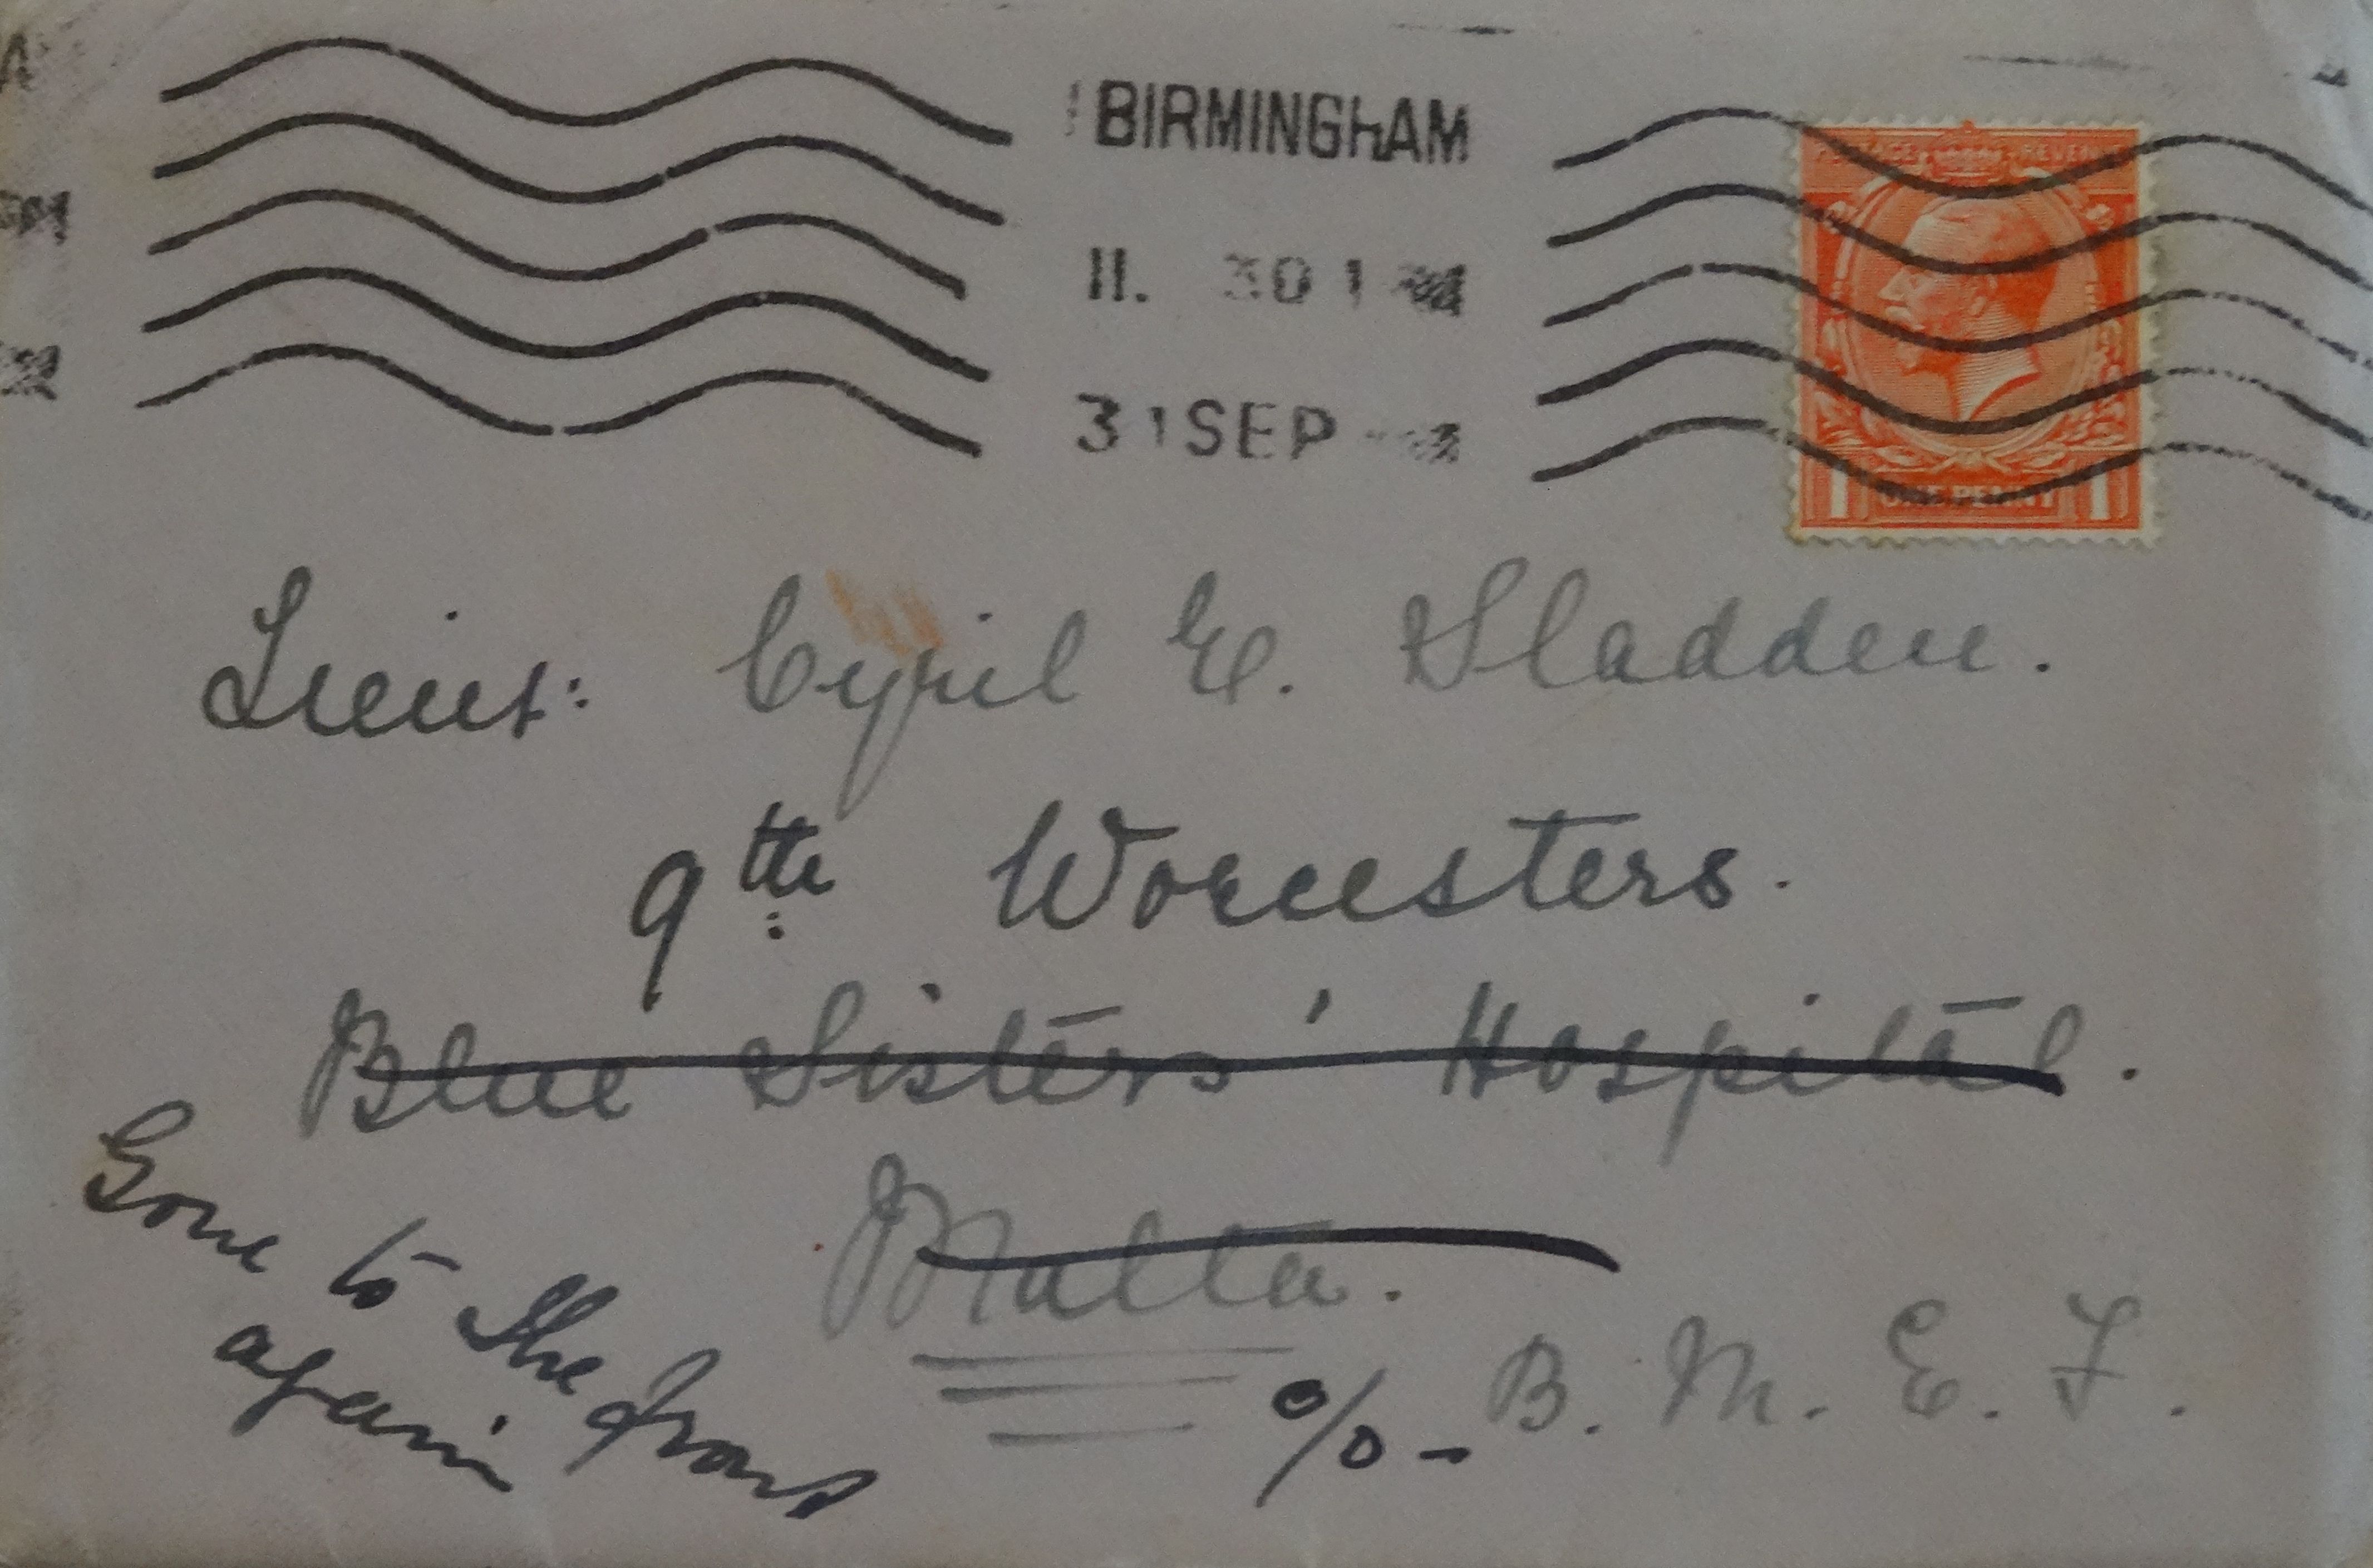 BIRMINGHAM
11. 30
3 SEP
POSTAGE REVENUE
1 ONE PENNY 1
Lieut: Cyril E. Sladden.
9th Worcesters.
Blue Sisters' Hospital.
Malta.
c/o - B. M. E. F.
Gone to the front
again